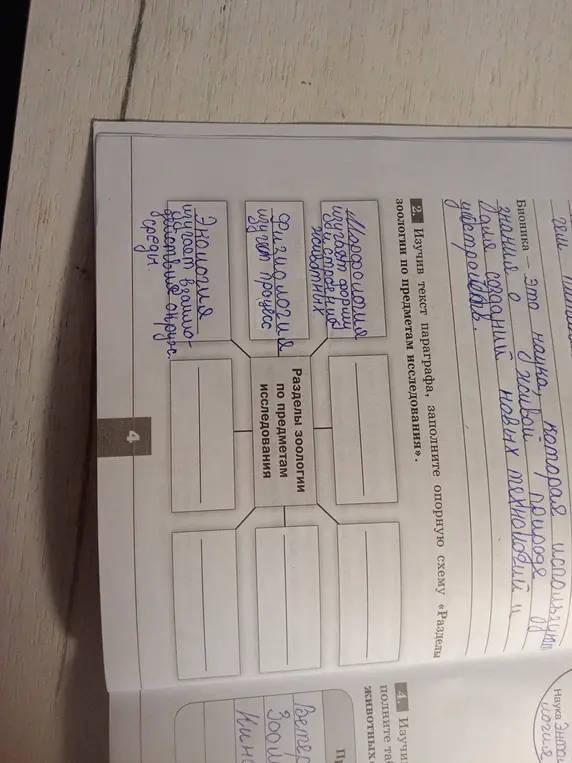 Бионика – это наука, которая использует
знания о живой природе
для создания новых технологий и
устройств.
2. Изучив текст параграфа, заполните опорную схему «Разделы
зоологии по предметам исследования».
Морфология
изучает форму
и строение
животных
Физиология
изучает процесс
Экология
изучает взаимо-
действие с окруж.
средой.
Разделы зоологии
по предметам
исследования
4
4. Изучи
полните та
животных
Наука
Ветер
Зоо
Кин